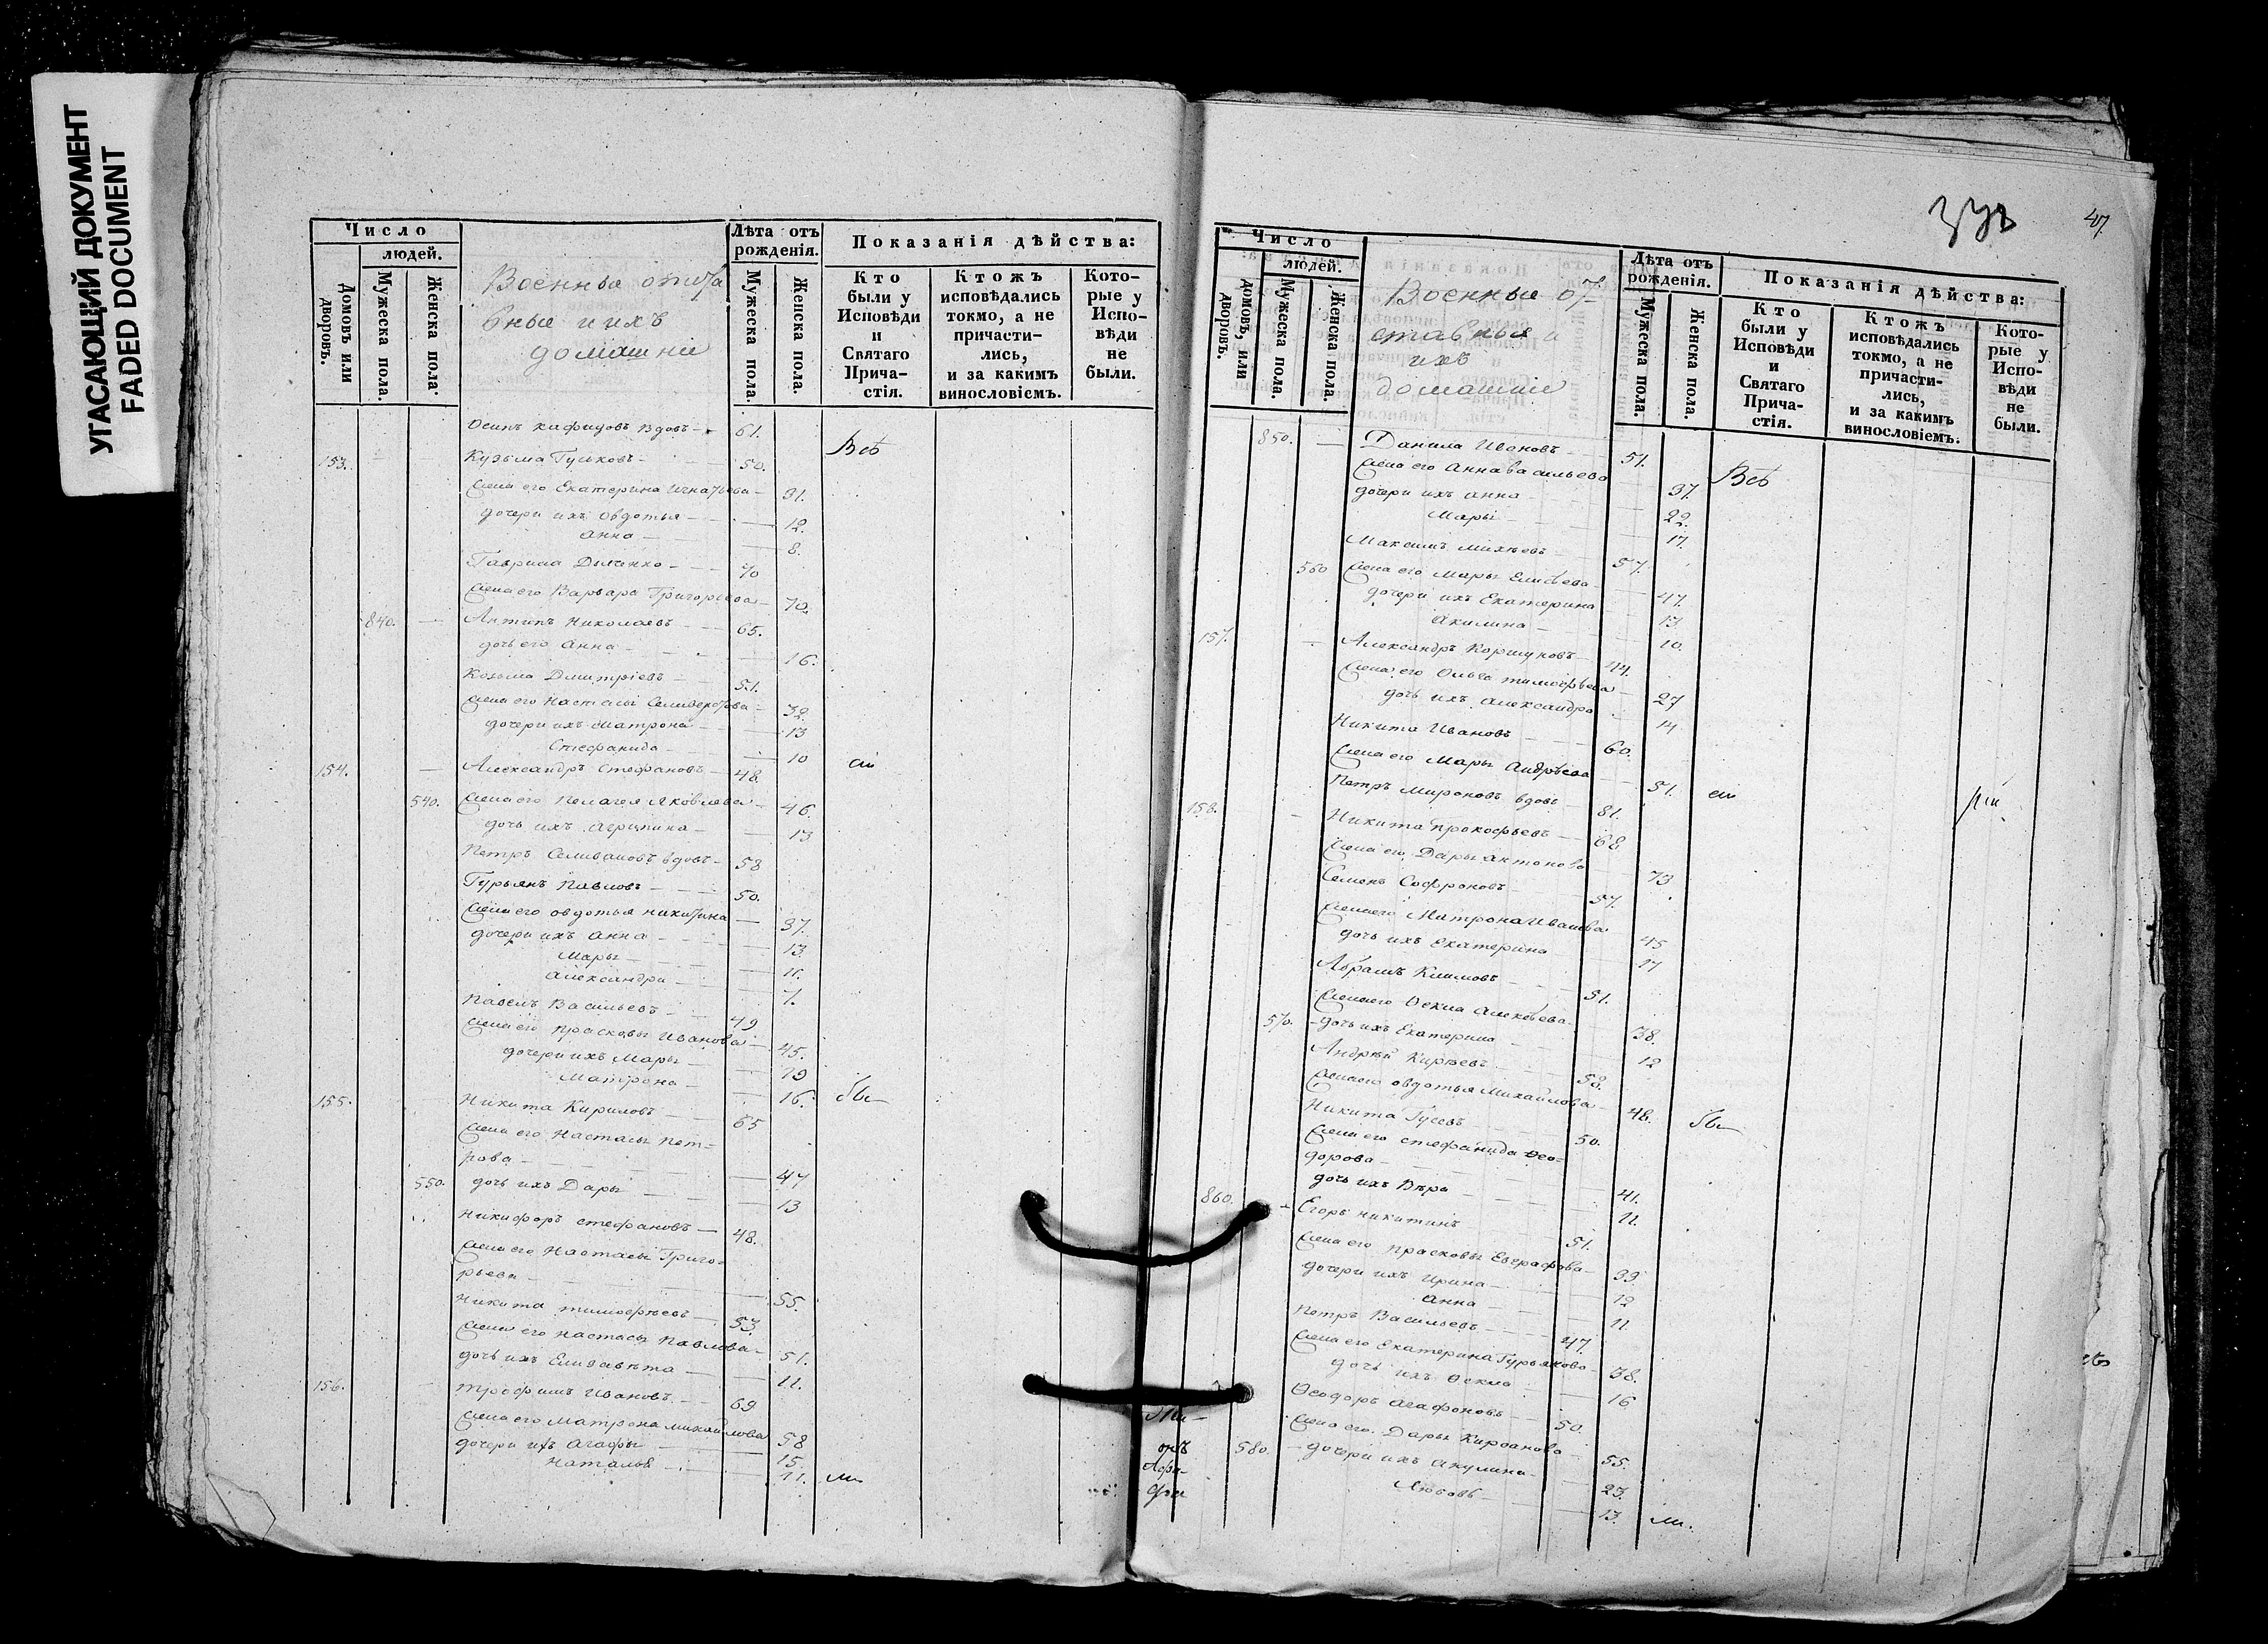 УГАСАЮЩИЙ ДОКУМЕНТ
FADED DOCUMENT
Число
людей.
Домовъ или дворовъ.
Мужеска пола.
Женска пола.
Военные отста
вные и ихъ
домашніе
Лѣта отъ рожденія.
Мужеска пола.
Женска пола.
Показанія дѣйства:
Кто были у Исповѣди и Святаго Прича- стія.
Ктожъ исповѣдались токмо, а не причасти- лись, и за какимъ винословіемъ.
Кото- рые у Испо- вѣди не были.
Осипъ вдовъ 61.
Всѣ
153. Кузьма Гуськовъ 50.
Жена его Екатерина Игнатьева 31.
дочери ихъ Овдотья 12.
Анна 8.
Гаврила 70
Жена его Варвара Григорьева 70.
840. Антипъ Николаевъ 65.
дочь его Анна 16.
Козьма Дмитріевъ 51.
Жена его Настасья 32.
дочери ихъ Матрона 13
Стефанида 10
сіи
154. Александръ Стефановъ 48.
540. Жена его Пелагея Яковлева 46.
дочь ихъ Агрипина 13
Петръ Селивановъ вдовъ 58
Гурьянъ Павловъ 50.
Жена его Овдотья Никитина 37.
дочери ихъ Анна 13.
Марья 11.
Александра 7.
Павелъ Васильевъ 49
Жена его Прасковья Иванова 45.
дочери ихъ Марья 19
Матрона 16.
155. Никита Кириловъ 65
Жена его Настасья Пет-
рова 47
550. дочь ихъ Дарья 13
Никифоръ Стефановъ 48.
Жена его Настасья Григо-
рьева 55.
Никита Тимофѣевъ 53.
Жена его Настасья Павлова 51.
дочь ихъ Елизавѣта 11.
156. Трофимъ Ивановъ 69
Жена его Матрона Михайлова 58
дочери ихъ Агафья 15.
Наталья 11.
ли
47.
Число
людей.
домовъ, или дворовъ.
Мужеска пола.
Женска пола.
Военные от-
ставные и
ихъ
домашніе
Лѣта отъ рожденія.
Мужеска пола.
Женска пола.
Показанія дѣйства:
Кто были у Исповѣди и Святаго Прича- стія.
Ктожъ исповѣдались токмо, а не причасти- лись, и за какимъ винословіемъ.
Кото- рые у Испо- вѣди не были.
850. Данила Ивановъ 51.
Жена его Анна Васильева 37.
Всѣ
дочери ихъ Анна 22.
Марья 17.
Максимъ Михѣевъ 57.
560 Жена его Марья Елисѣева 47.
дочери ихъ Екатерина 13
Акилина 10.
157. Александръ Коршуновъ 44.
Жена его Ольга Тимофѣева 27
дочь ихъ Александра 14
Никита Ивановъ 60.
Жена его Марья Андрѣева 51.
сіи
Петръ Мироновъ вдовъ 81.
158. Никита Прокофьевъ 68
Жена его Дарья Антонова 73
Семенъ Софроновъ 57.
Жена его Матрона Иванова 45
дочь ихъ Екатерина 17
Абрамъ Климовъ 51.
Жена его Ѳекла Алексѣева 38.
570. дочь ихъ Екатерина 12
Андрѣй Кирѣевъ 58.
Жена его Овдотья Михайлова 48.
Никита Гусевъ 50.
Жена его Стефанида Ѳео-
дорова 41.
дочь ихъ Вѣра 11.
860. Егоръ Никитинъ 51.
Жена его Прасковья Евграфова 39
дочери ихъ Ирина 12
Анна 11.
Петръ Васильевъ 47.
Жена его Екатерина Гурьянова 38.
дочь ихъ Ѳекла 16
Ѳеодоръ Агафоновъ 50.
Жена его Дарья 55.
580. дочери ихъ Акулина 23.
Любовь 13.
ли.